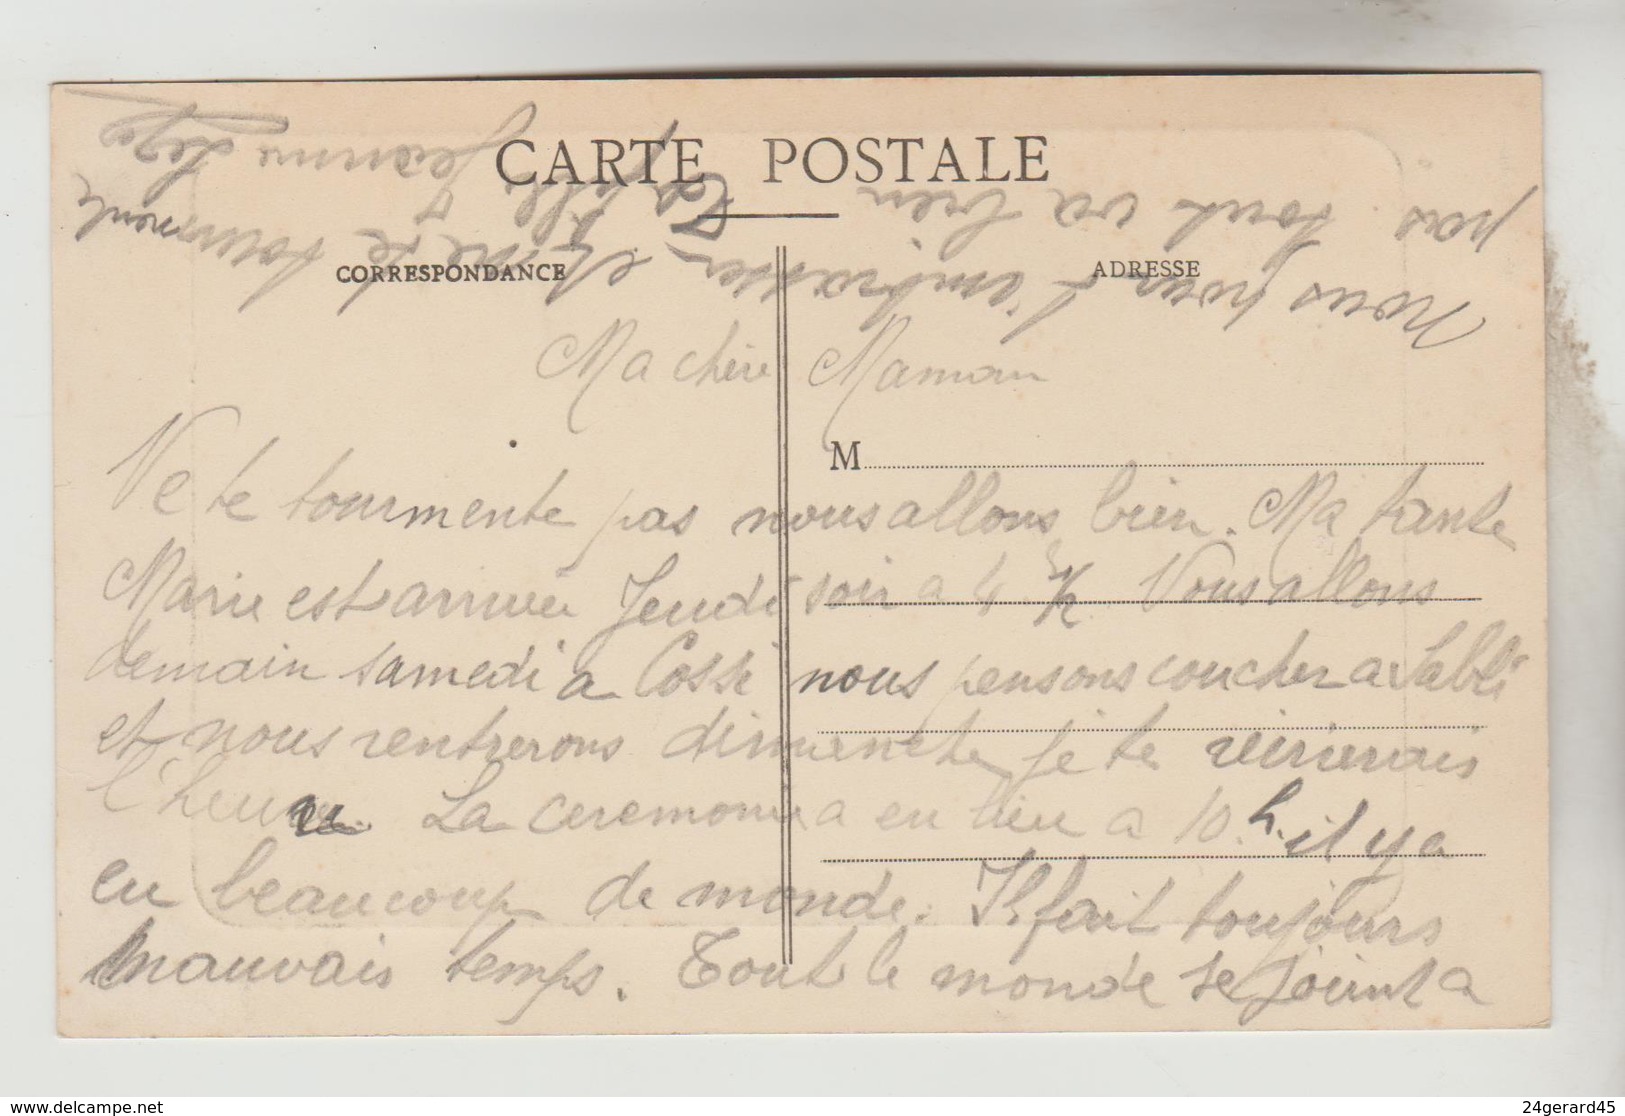 CARTE POSTALE
CORRESPONDANCE
ADRESSE
M
Ma chère Maman
Ne te tourmente pas nous allons bien. Ma tante
Marie est arrivée Jeudi soir a 4 h 1/2. Nous allons
demain samedi a Cossé nous pensons coucher a Sablé
et nous rentrerons dimanche je te
l'heure. La ceremonie a eu lieu a 10 h. il y a
eu beaucoup de monde. Il fait toujours
mauvais temps. Tout le monde se joint a
nous pour t'embrasser et ne te tourmente
pas tout va bien
Ta fille Jeanne
24gerard45
http://www.delcampe.net